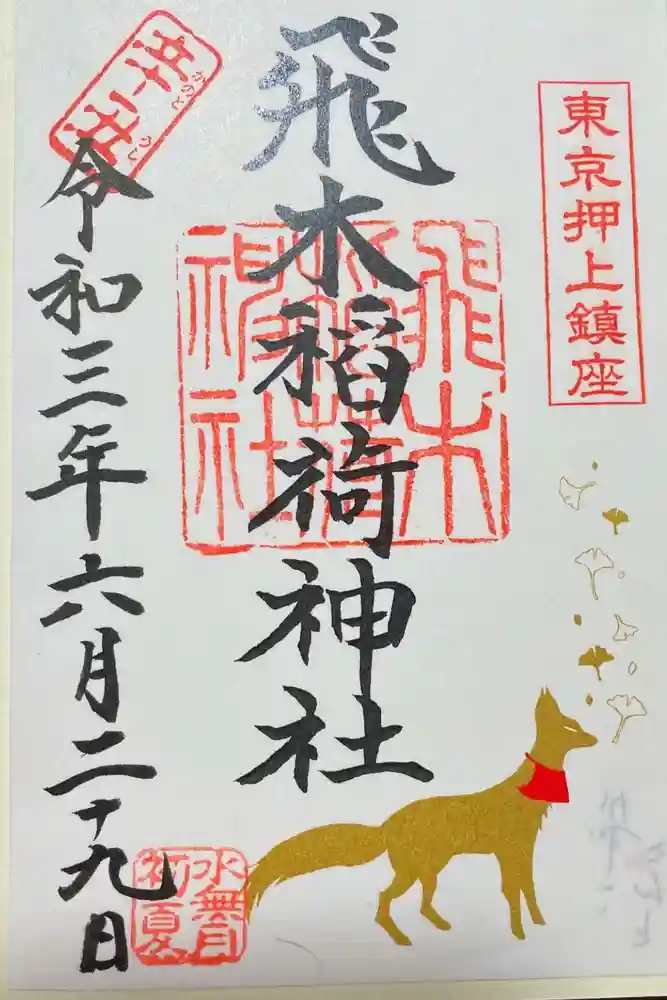 東京押上鎮座
飛木稲荷神社
飛木
稲荷
神社
辛丑
かのと
令和三年六月二十九日
水無月